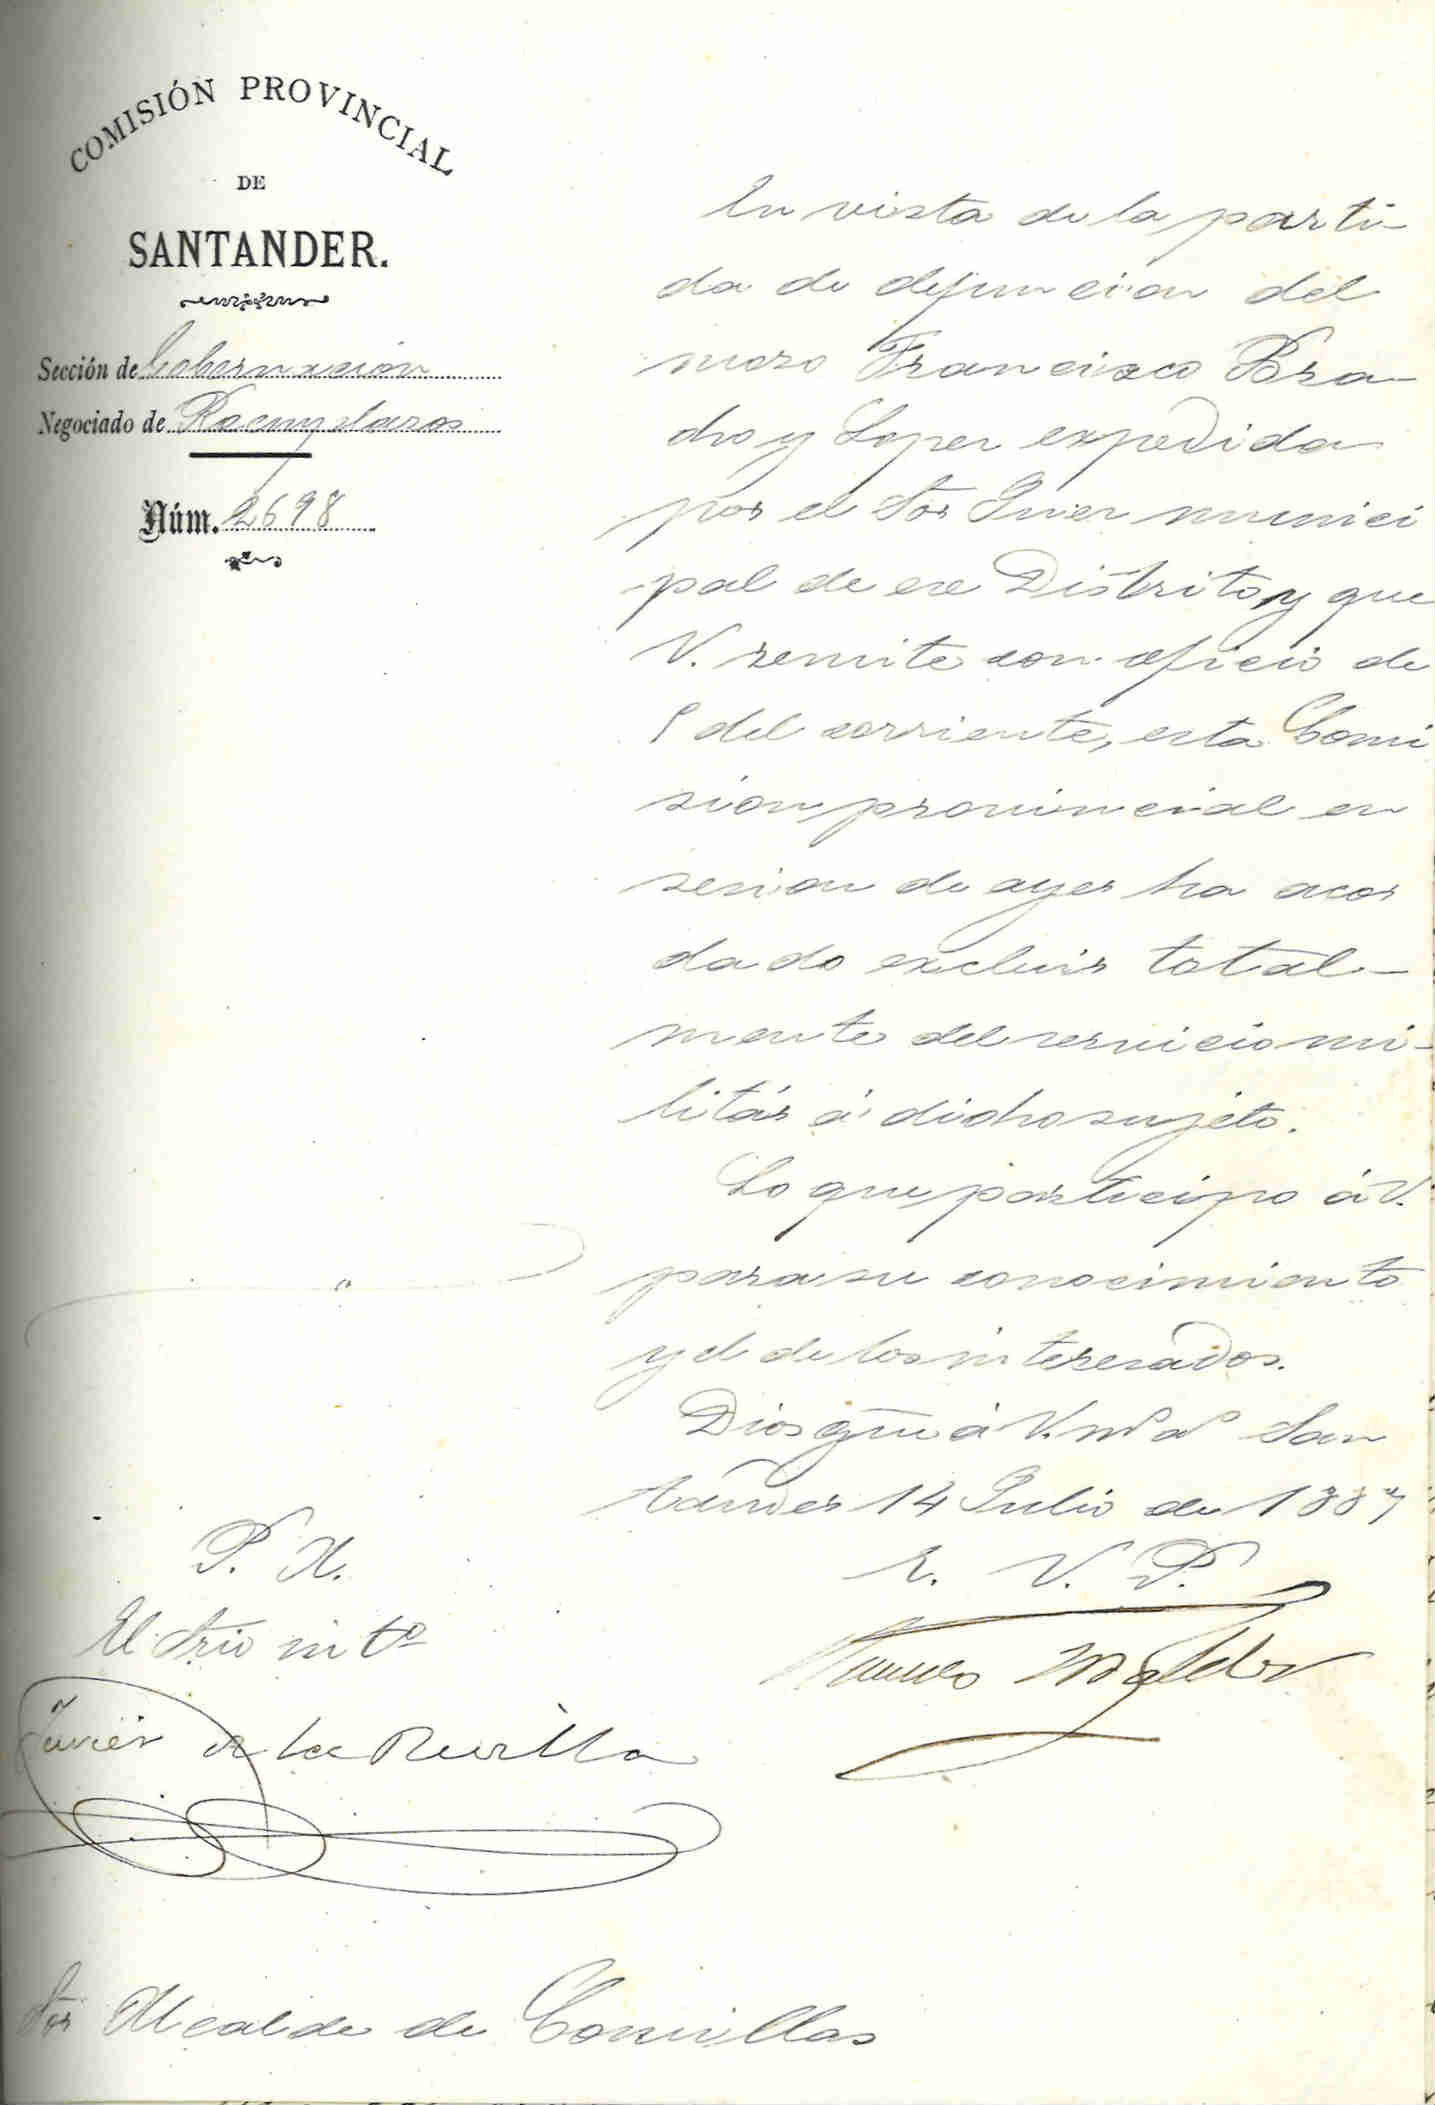 COMISIÓN PROVINCIAL
DE
SANTANDER.
Sección de Gobernación
Negociado de Reemplazos
Núm. 2698
En vista de la parti-
da de defuncion del
mozo Francisco Bra-
cho y Lopez expedida
por el Sor Juez munici
pal de ese Distrito, y que
V. remite con oficio de
9 del corriente, esta Comi
sion provincial en
sesion de ayer ha acor
dado excluir total-
mente del servicio mi-
litár á dicho sujeto.
Lo que participo á V.
para su conocimiento
y el de los interesados.
Dios güe á V. ms as San
tander 14 Julio de 1887
E. V. P.
P. A.
El Srio intº
Javier de la Revilla
Sor Alcalde de Comillas